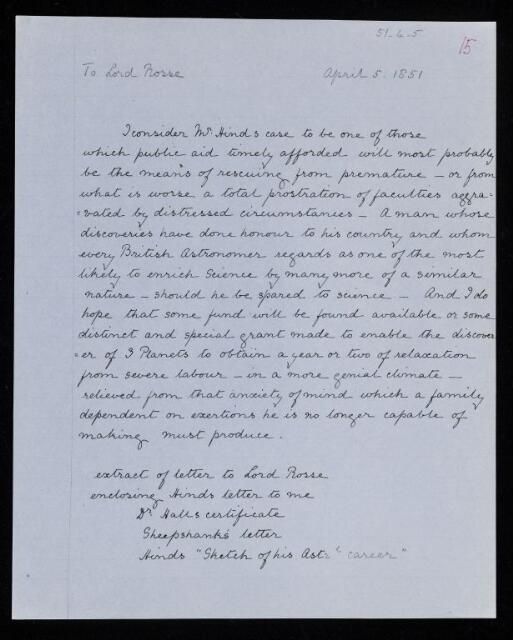 51-4-5
15
To Lord Rosse April 5. 1851
I consider Mr Hind's case to be one of those
which public aid timely afforded will most probably
be the means of rescuing from premature – or from
what is worse a total prostration of faculties aggra-
=vated by distressed circumstances – A man whose
discoveries have done honour to his country and whom
every British Astronomer regards as one of the most
likely to enrich Science by many more of a similar
nature – should he be spared to science – And I do
hope that some fund will be found available or some
distinct and special grant made to enable the discover
=er of 3 Planets to obtain a year or two of relaxation
from severe labour – in a more genial climate –
relieved from that anxiety of mind which a family
dependent on exertions he is no longer capable of
making must produce.
extract of letter to Lord Rosse
enclosing Hinds letter to me
Dr Halls certificate
Sheepshanks letter
Hinds "Sketch of his Astrl career"